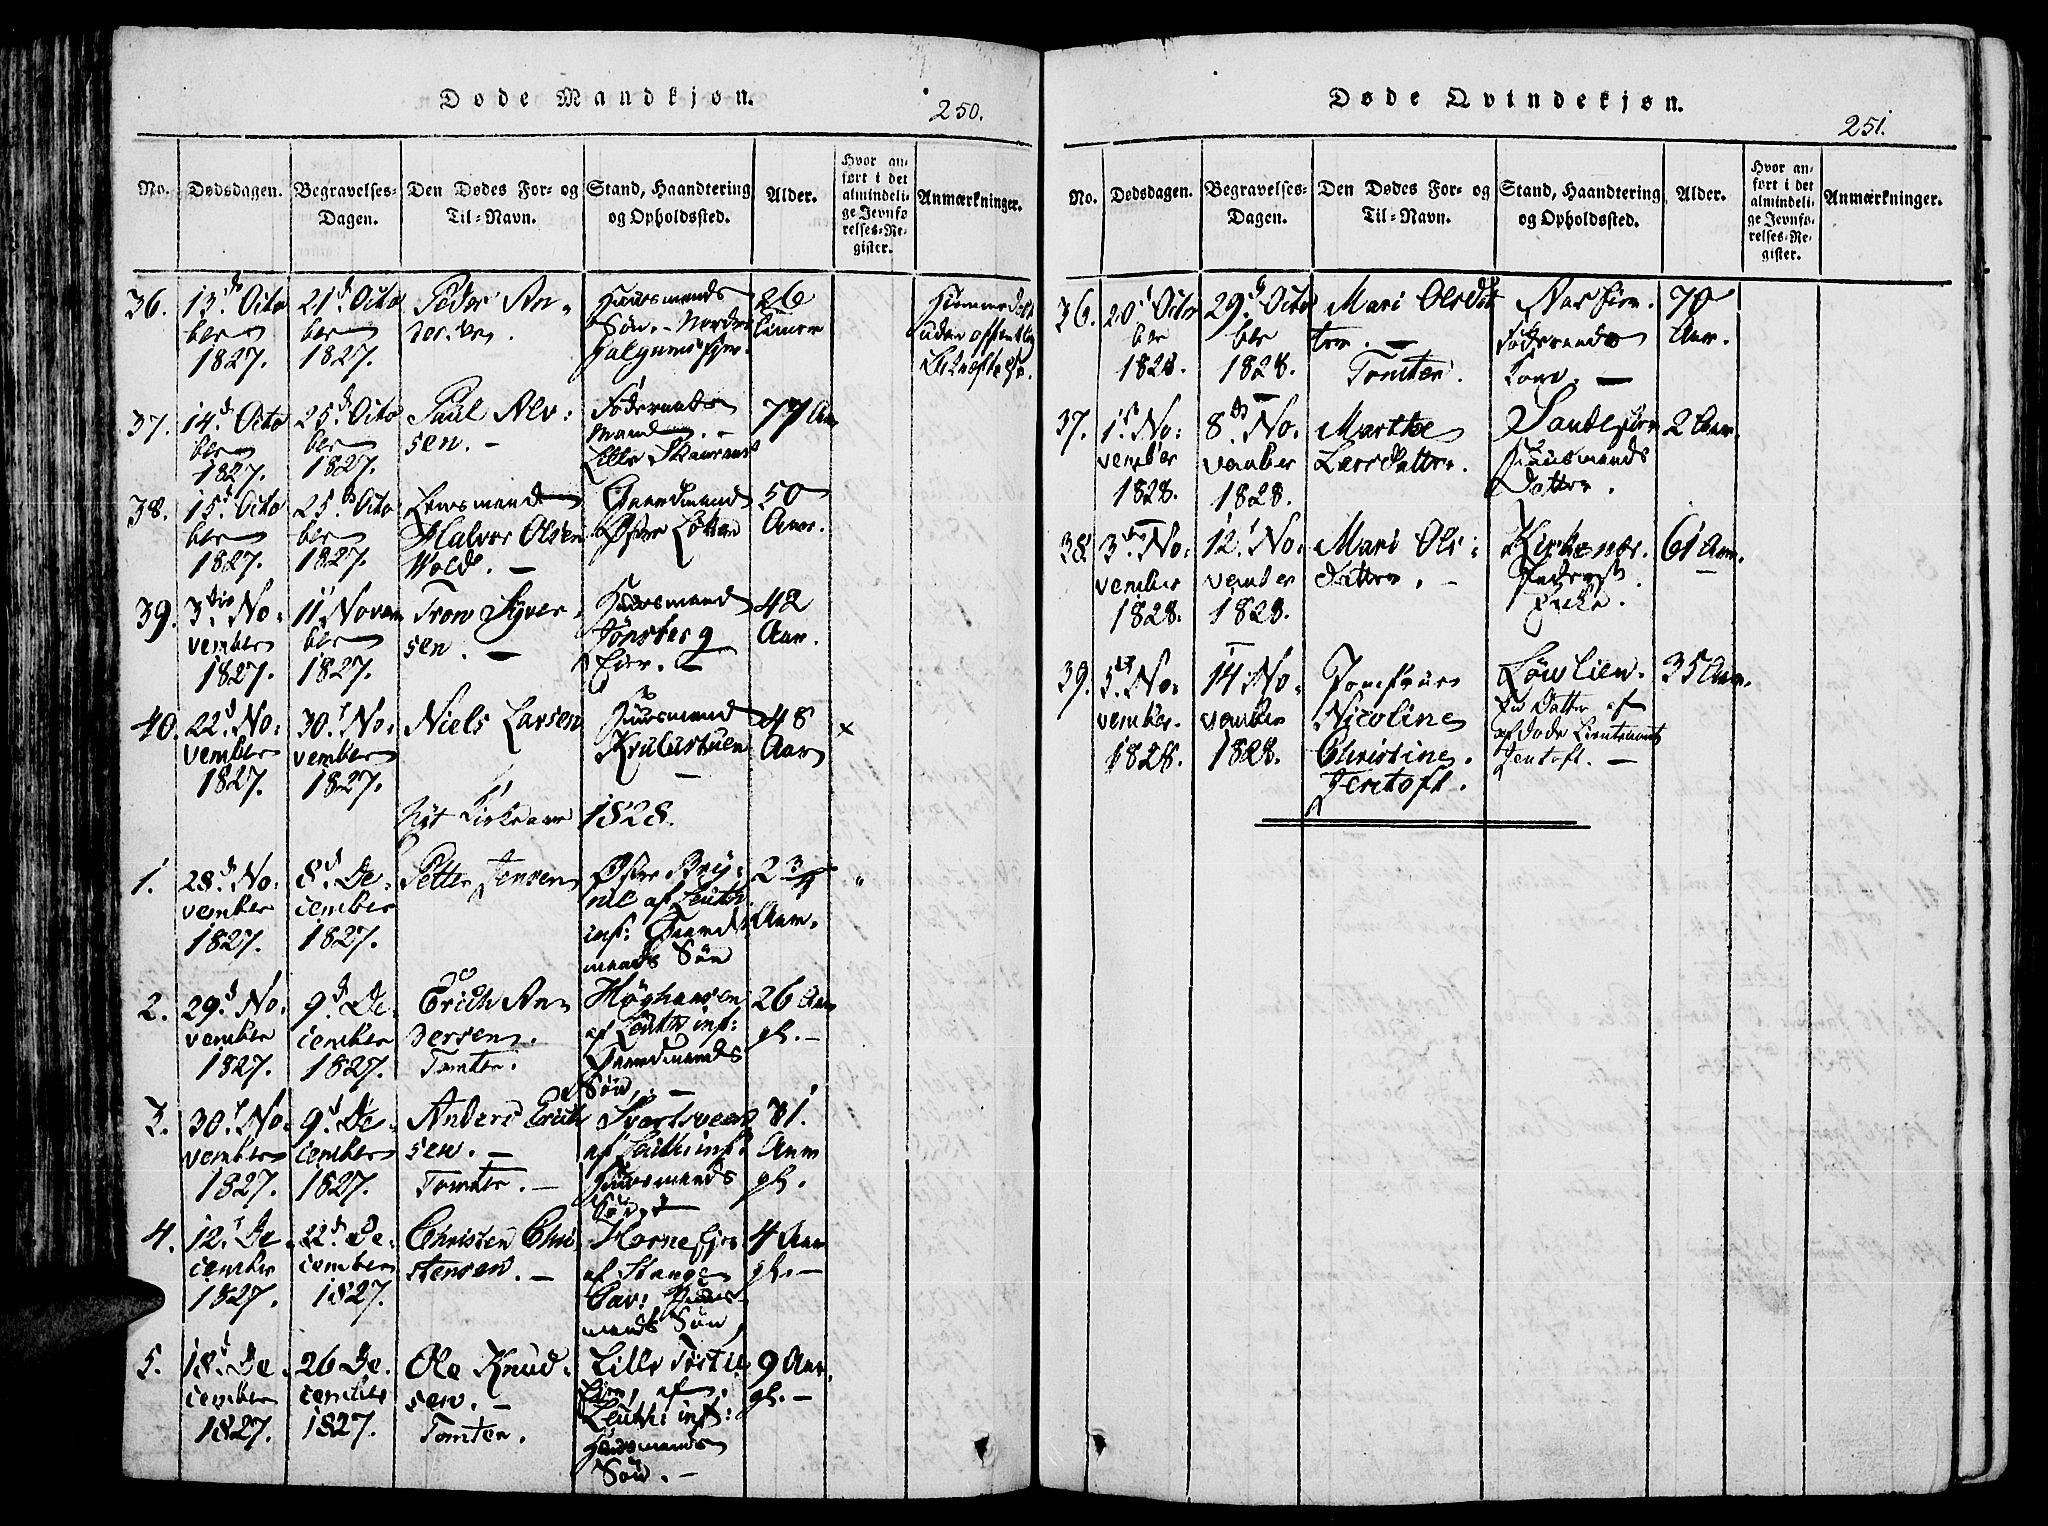 Døde Mandkjøn.
250.
No.
Dødsdagen.
Begravelses-
Dagen.
Den Dødes For- og
Til-Navn.
Stand, Haandtering
og Opholdssted.
Alder.
Hvor an-
ført i det
almindeli-
ge Jevnfø-
relses-Re-
gister.
Anmærkninger.
36.
13de Octo
ber
1827.
21d Octo
ber
1827.
Peder An-
dersen.
Huusmands
Søn. - Nordre
26
Timer
Hjemmedøbt
uden offentlig
37.
14d Octo
ber
1827.
25d Octo
ber
1827.
Paul Alv:
sen. -
Føderaads
Mand. -
Lille
77 Aar
38.
15d Octo
ber
1827.
25d Octo
ber
1827.
Lensmand
Halvor Olsen
Wold. -
Gaardmand
Østre Løken
50
Aar.
39.
3die No:
vember
1827.
11 Novem
ber
1827.
Tron Syver
sen. -
Huusmand
Tønsberg
Eier. -
42
Aar.
40.
22d No:
vember
1827.
30t No:
vember
1827.
Niels Larsen
Huusmand
Krulustuen
48
Aar
x
Nyt Kirkeaar 1828.
1.
28d No:
vember
1827.
8d De:
cember
1827.
Petter Jensen
Østre Bry:
nie af Leuth:
inf: Gaard-
mands Søn
2 3/4
Aar.
2.
29d No:
vember
1827.
9d De:
cember
1827.
Erich An-
dersen.
Tomter.
Høghausen
af Leuth inf:
Gaardmands
Søn. -
26 Aar
gl. -
3.
30t No:
vember
1827.
9d De:
cember
1827.
Anders Erich
sen. -
Tomter. -
Svartsveen
af Leuth: inf:
Huusmands
Søn. -
31.
Aar
gl.
4.
12t De:
cember
1827.
22d De:
cember
1827.
Christen Chri
stensen. -
Horne Ejer
af Stange
Cav: Huus-
mands Søn
4 Aar
gl. -
5.
18d De
cember
1827.
26 De:
cember
1827.
Ole Knud-
sen. -
Tomter.
Lille
af
Leuth: inf:
Huusmands
Søn. -
9 Aar.
gl. -
Døde Qvindekjøn.
251.
No.
Dødsdagen.
Begravelses-
Dagen.
Den Dødes For- og
Til-Navn.
Stand, Haandtering
og Opholdssted.
Alder.
Hvor an-
ført i det
almindeli-
ge Jevnfø-
relses-Re-
gister.
Anmærkninger.
36.
20d Octo
ber
1828.
29d Octo
ber
1828.
Mari Olsdat
ter. -
Tomter.
Føderaads
Kone. -
70
Aar.
37.
1st No:
vember
1828.
8de No:
vember
1828.
Marthe
Larsdatter.
Huusmands
Datter.
2 Aar.
38.
3die No:
vember
1828.
12t No:
vember
1828.
Mari Ols:
datter. -
Kirkenær.
Enke.
61 Aar.
39.
5te No:
vember.
1828.
14 No:
vember
1828.
Jomfrue
Nicoline
Christine
Jentoft.
Løvlien.
en Datter af
afdøde Lieutenant
Jentoft. -
35 Aar.